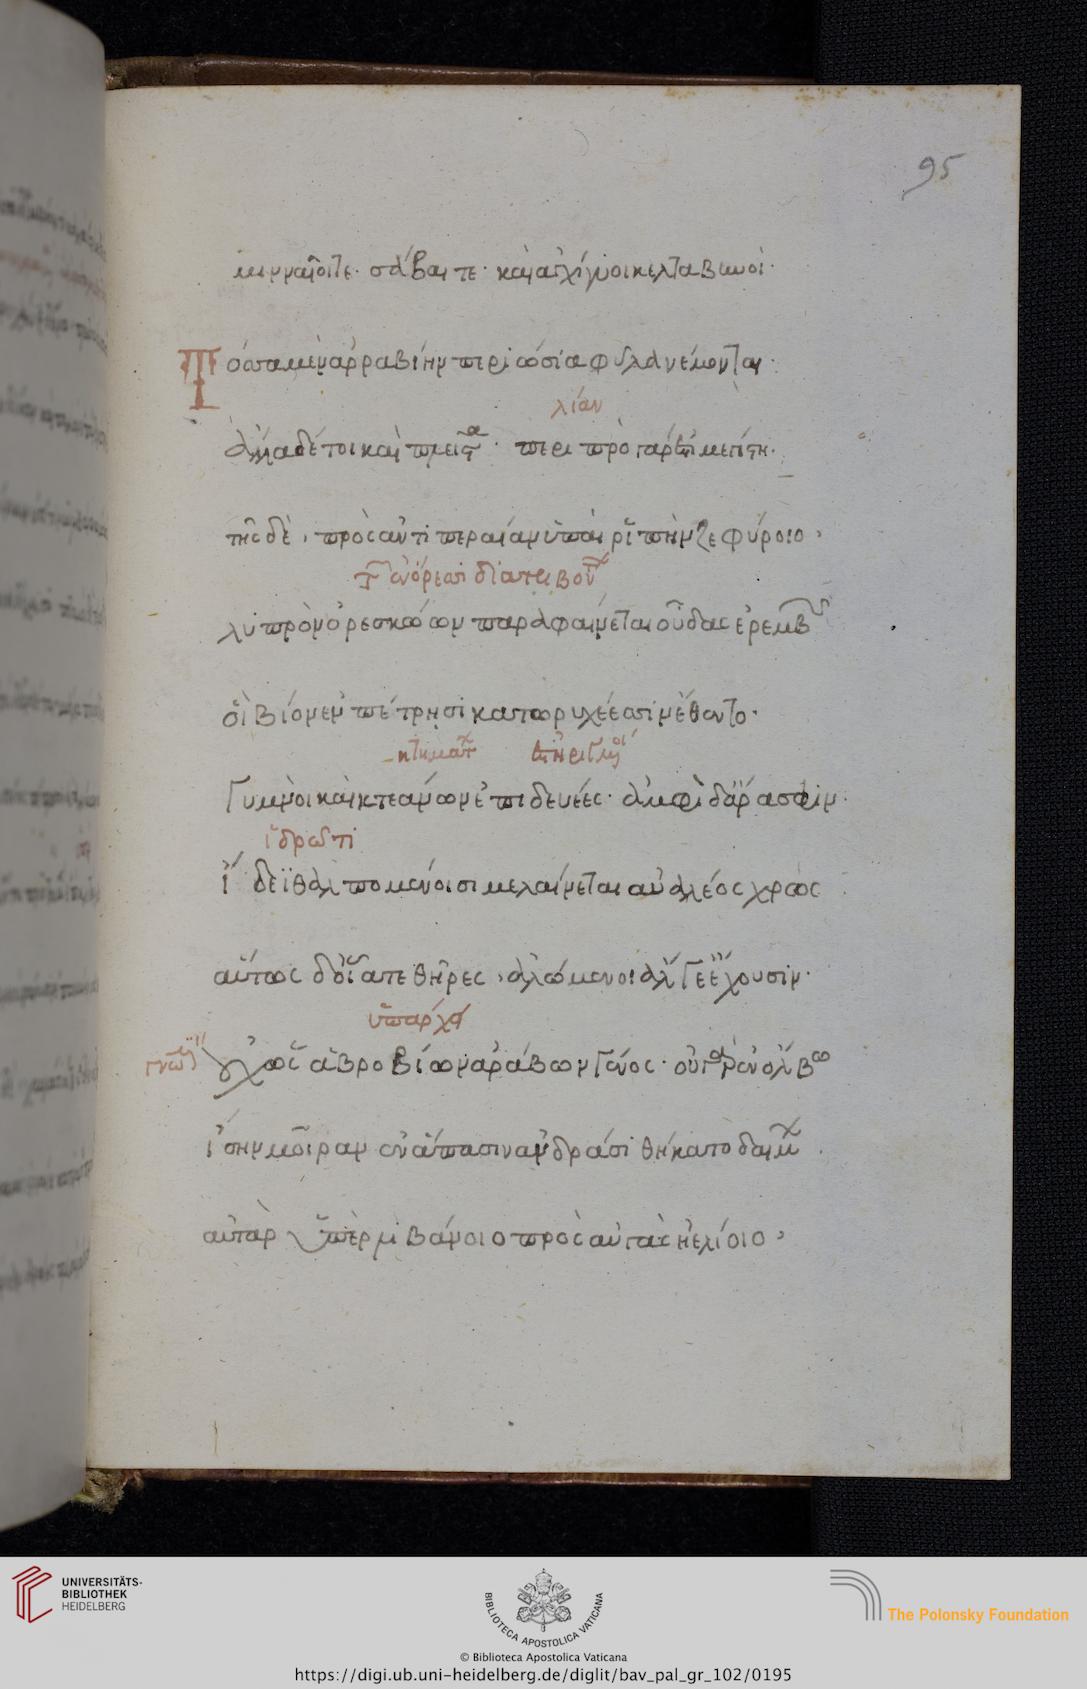 95
μινναῖοίτε· σάβαι τε· καὶ ἀγχίγυοι κλεταβηνοί·
Τόσσα μὲν ἀρραβίην περιώσια φῦλα νέμονται·
λίαν
ἀλλὰ δέ τοι καὶ πλεῖστα· περὶ πρὸ γάρ ἐστι μεγίστη·
τῆς δὲ, πρὸς ἀντιπεραίαν ὑπαὶ ῥιπὴν ζεφύροιο,
τῶν ἐν ὄρεσι διατριβόντων
λυπρὸν ὀρεσκώων παραφαίνεται οὖδας ἐρεμβῶν
οἳ βίον ἐν πέτρησι κατωρυχέεσσιν ἔθοντο·
κτημάτων
Γυμνοὶ καὶ κτεάνων ἐπιδευέες· ἀμφὶ δ' ἄρά σφιν·
ἱδρῶτι
ἴδεϊ θαλπομένοισι μελαίνεται αὐαλέος χρώς
αὔτως δ' οἷά τε θῆρες, ἀλώμενοι ἄλγε' ἔχουσιν·
ὑπάρχει
οὐχ ὡς ἁβροβίων ἀράβων γένος· οὐ γὰρ ἐν ὄλβῳ
ἴσην μοῖραν ἐν ἅπασιν ἀνδράσι θήκατο δαίμων
αὐτὰρ ὑπὲρ λιβάνοιο πρὸς αὐγὰς ἠελίοιο,
UNIVERSITÄTS-
BIBLIOTHEK
HEIDELBERG
BIBLIOTECA APOSTOLICA VATICANA
The Polonsky Foundation
© Biblioteca Apostolica Vaticana
https://digi.ub.uni-heidelberg.de/diglit/bav_pal_gr_102/0195